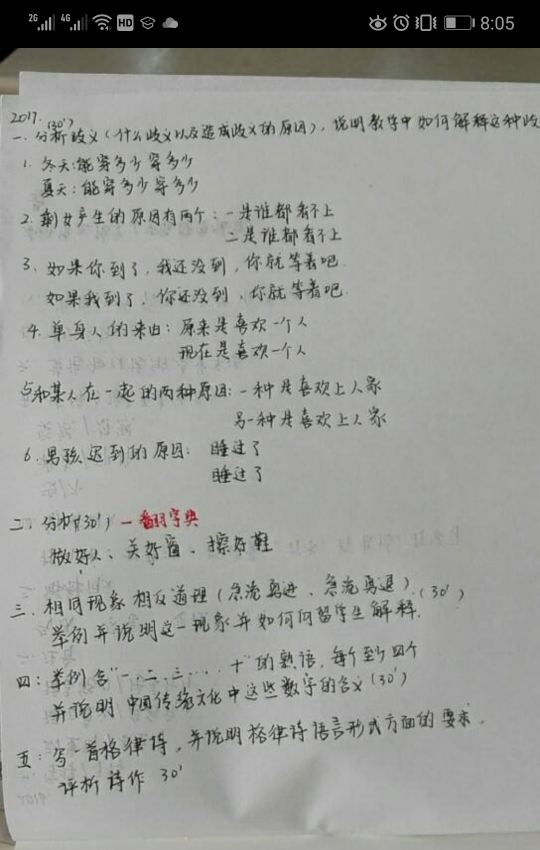 2G 4G HD 8:05
2017. (30')
一. 分析歧义(什么歧义以及造成歧义的原因), 说明教学中如何解释这种歧
1. 冬天:能穿多少穿多少
夏天:能穿多少穿多少
2. 剩女产生的原因有两个:一是谁都看不上
二是谁都看不上
3. 如果你到了, 我还没到, 你就等着吧.
如果我到了, 你还没到, 你就等着吧.
4. 单身人的来由: 原来是喜欢一个人
现在是喜欢一个人
和某人在一起的两种原因:一种是喜欢上人家
另一种是喜欢上人家
6. 男孩迟到的原因: 睡过了
睡过了
二. 分析(30') 一翻字典
做好人、关好窗、擦好鞋
三. 相同现象相反道理(急流勇进、急流勇退). (30')
举例并说明这一现象并如何向留学生解释.
四: 举例含"一、二、三.... 十"的熟语, 每个至少四个
并说明中国传统文化中这些数字的含义(30')
五: 写一首格律诗, 并说明格律诗语言形式方面的要求,
评析诗作 30'